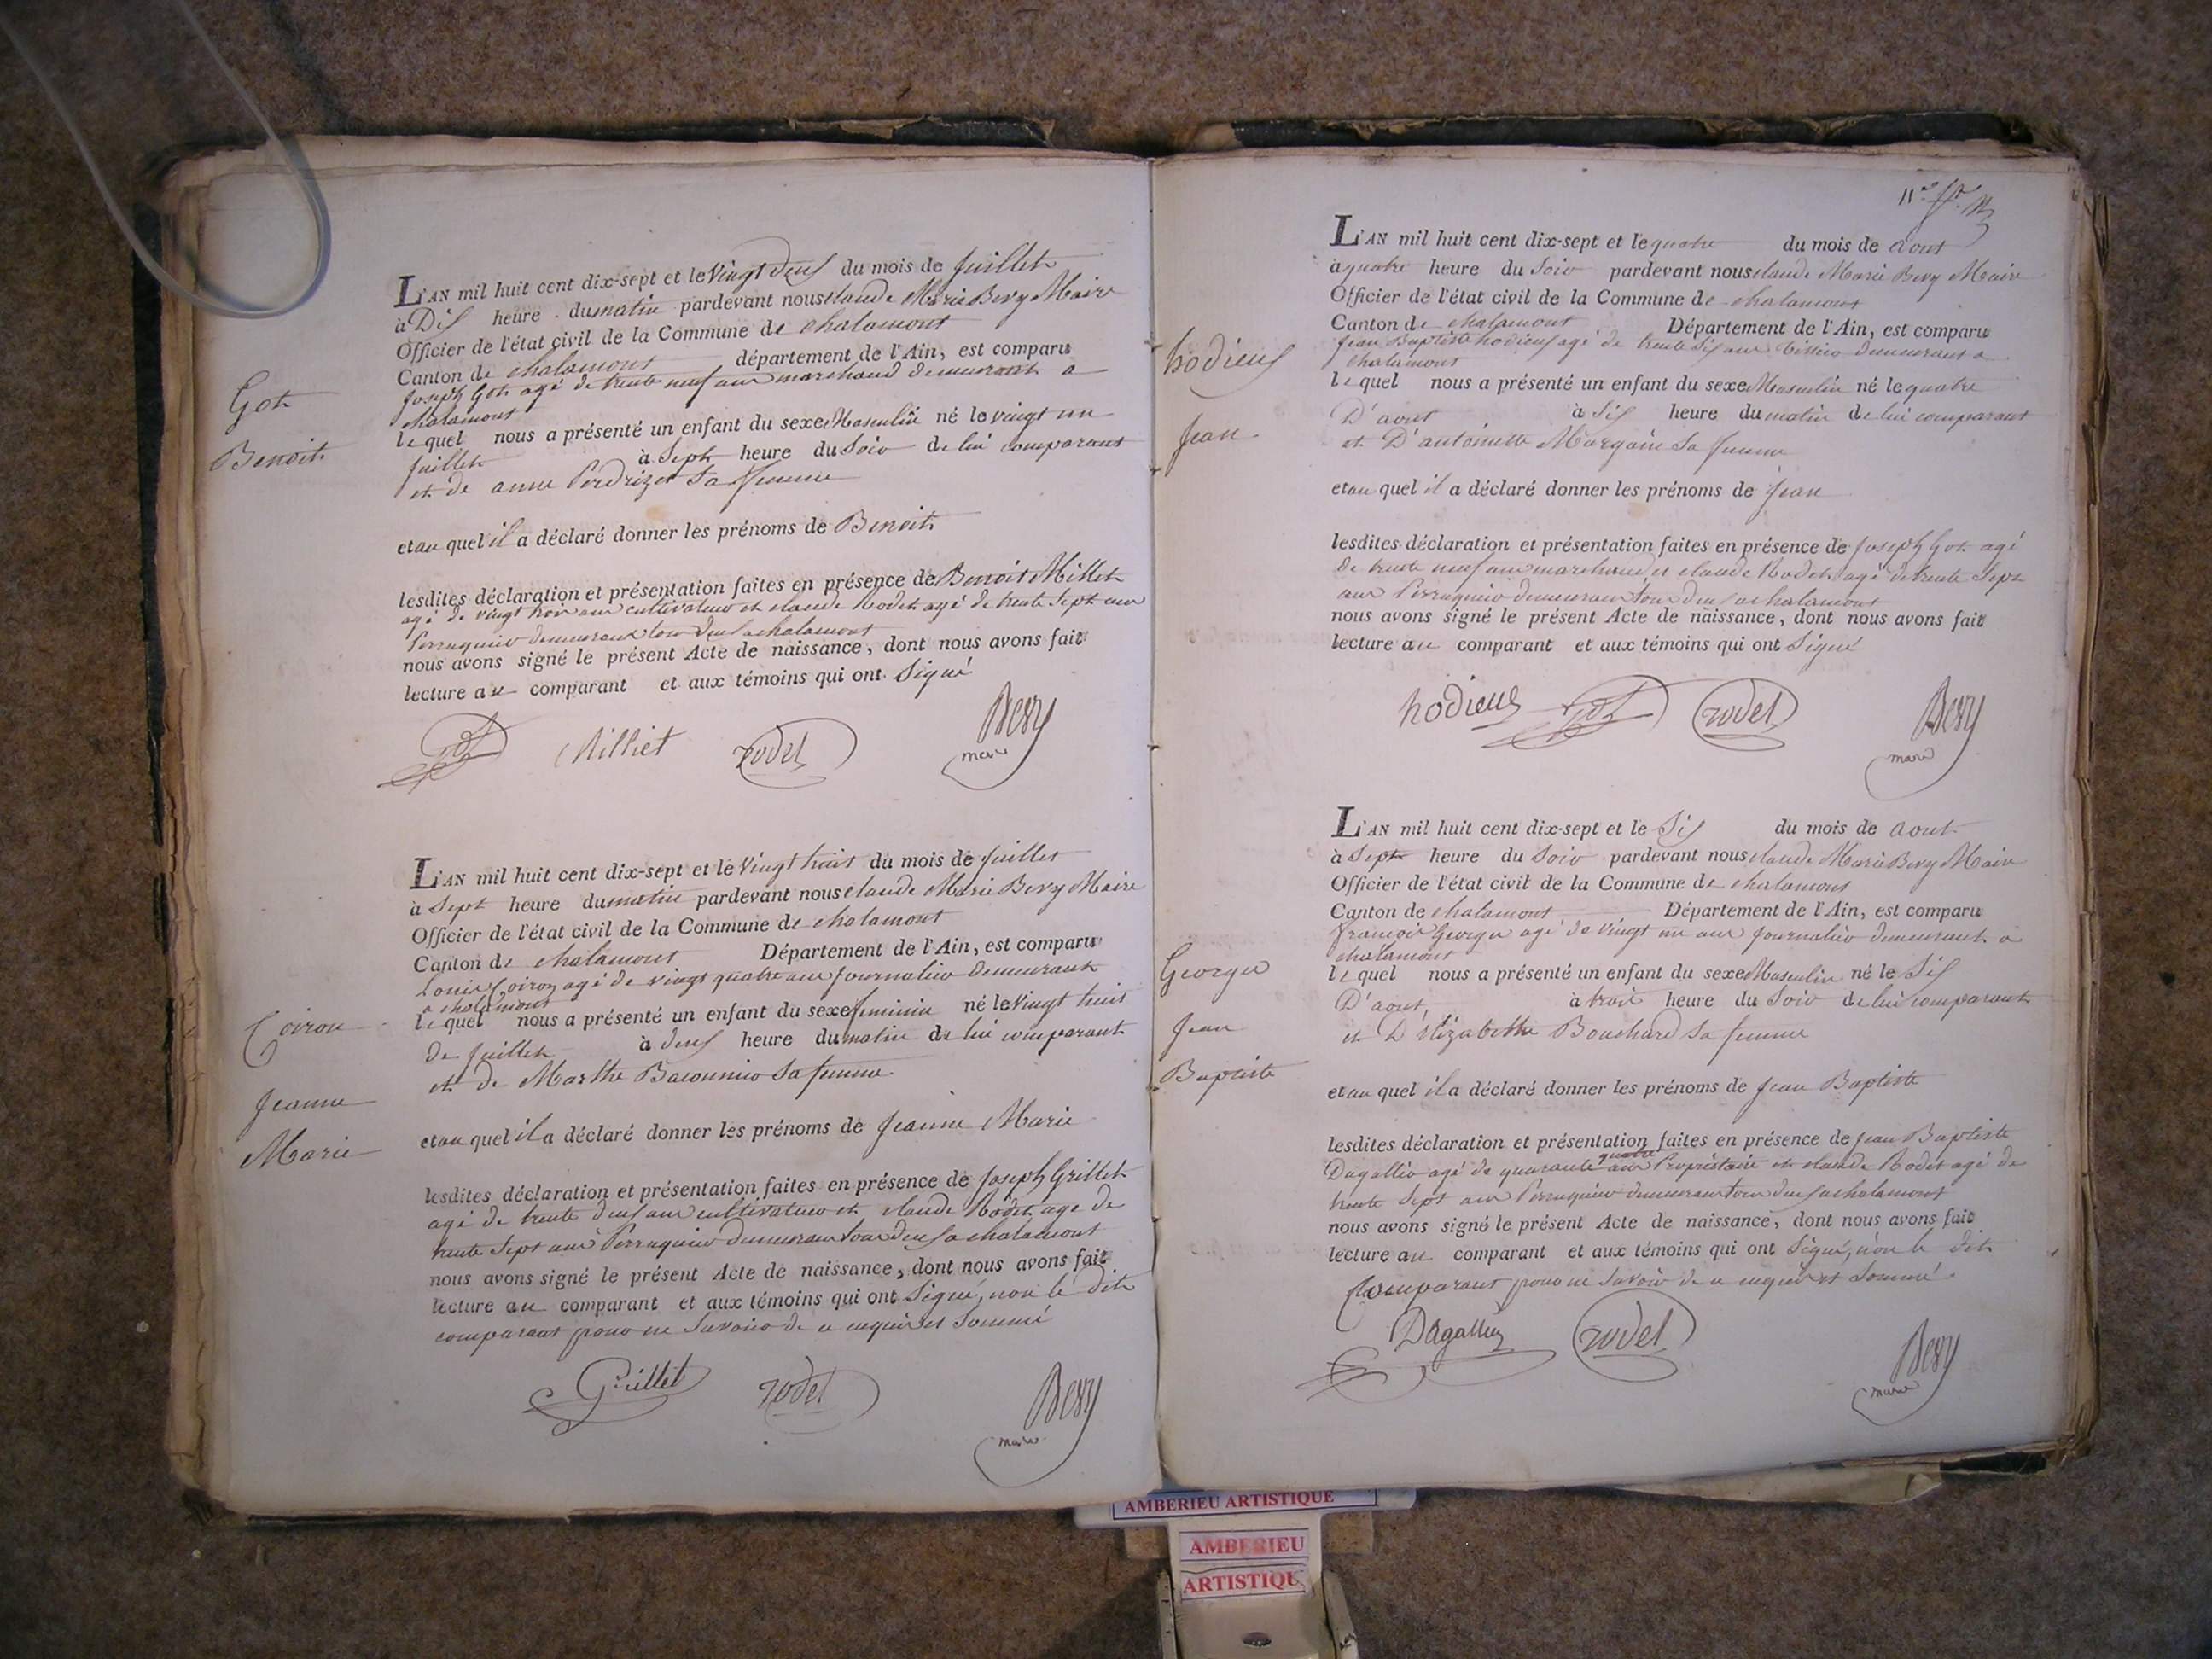 Got
Benoit
L'AN mil huit cent dix-sept et le vingt deux du mois de Juillet
à Dix heure du matin pardevant nous claude Marie Bevy Maire
Officier de l'état civil de la Commune de chalamont
Canton de chalamont département de l'Ain, est comparu
Joseph Got agé de trente neuf ans marchand demeurant a
chalamont
lequel nous a présenté un enfant du sexe Masculin né le vingt un
Juillet à Sept heure du Soir de lui comparant
et de anne Perdrizet Sa femme
et au quel il a déclaré donner les prénoms de Benoit
lesdites déclaration et présentation faites en présence de Benoit Milliet
agé de vingt trois ans cultivateur et claude Rodet agé de trente Sept ans
Perruquier demeurant tous deux a chalamont
nous avons signé le présent Acte de naissance, dont nous avons fait
lecture au comparant et aux témoins qui ont Signé
Got Milliet rodet Bevy
maire
Coiron
Jeanne
Marie
L'AN mil huit cent dix-sept et le Vingt huit du mois de Juillet
à Sept heure du matin pardevant nous claude Marie Bevy Maire
Officier de l'état civil de la Commune de chalamont
Canton de chalamont Département de l'Ain, est comparu
Louis Coiron agé de vingt quatre ans Journalier demeurant
a chalamont
lequel nous a présenté un enfant du sexe feminin né le vingt huit
de Juillet à deux heure du matin de lui comparant
et de Marthe Baconnier Sa femme
et au quel il a déclaré donner les prénoms de Jeanne Marie
lesdites déclaration et présentation faites en présence de Joseph Grillet
agé de trente deux ans cultivateur et claude Rodet age de
trente Sept ans Perruquier demeurant tous deux a chalamont
nous avons signé le présent Acte de naissance, dont nous avons fait
lecture au comparant et aux témoins qui ont Signé, non le dit
comparant pour ne Savoir de ce enquis et Sommé
Grillet rodet Bevy
maire
hodieux
Jean
L'AN mil huit cent dix-sept et le quatre du mois de aout
à quatre heure du Soir pardevant nous claude Marie Bevy Maire
Officier de l'état civil de la Commune de chalamont
Canton de chalamont Département de l'Ain, est comparu
Jean Baptiste hodieux agé de trente Six ans tissier demeurant a
chalamont
lequel nous a présenté un enfant du sexe Masculin né le quatre
D'aout à Six heure du matin de lui comparant
et D'antoinette Margain Sa femme
et au quel il a déclaré donner les prénoms de Jean
lesdites déclaration et présentation faites en présence de Joseph Got agé
de trente neuf ans marchand et claude Rodet agé de trente Sept
ans Perruquier demeurant tous deux a chalamont
nous avons signé le présent Acte de naissance, dont nous avons fait
lecture au comparant et aux témoins qui ont Signé
hodieux Got rodet Bevy
maire
George
Jean
Baptiste
L'AN mil huit cent dix-sept et le Six du mois de aout
à Sept heure du Soir pardevant nous claude Marie Bevy Maire
Officier de l'état civil de la Commune de chalamont
Canton de chalamont Département de l'Ain, est comparu
françois George agé de vingt un ans Journalier demeurant a
chalamont
lequel nous a présenté un enfant du sexe Masculin né le Six
D'aout, à trois heure du Soir de lui comparant
et D'Elizabethe Bouchard Sa femme
et au quel il a déclaré donner les prénoms de Jean Baptiste
lesdites déclaration et présentation faites en présence de Jean Baptiste
Dagallier agé de quarante quatre ans Propriétaire et claude Rodet agé de
trente Sept ans Perruquier demeurant tous deux a chalamont
nous avons signé le présent Acte de naissance, dont nous avons fait
lecture au comparant et aux témoins qui ont Signé, non le dit
Comparant pour ne Savoir de ce enquis et Sommé.
Dagallier rodet Bevy
maire
AMBERIEU ARTISTIQUE
AMBERIEU
ARTISTIQU